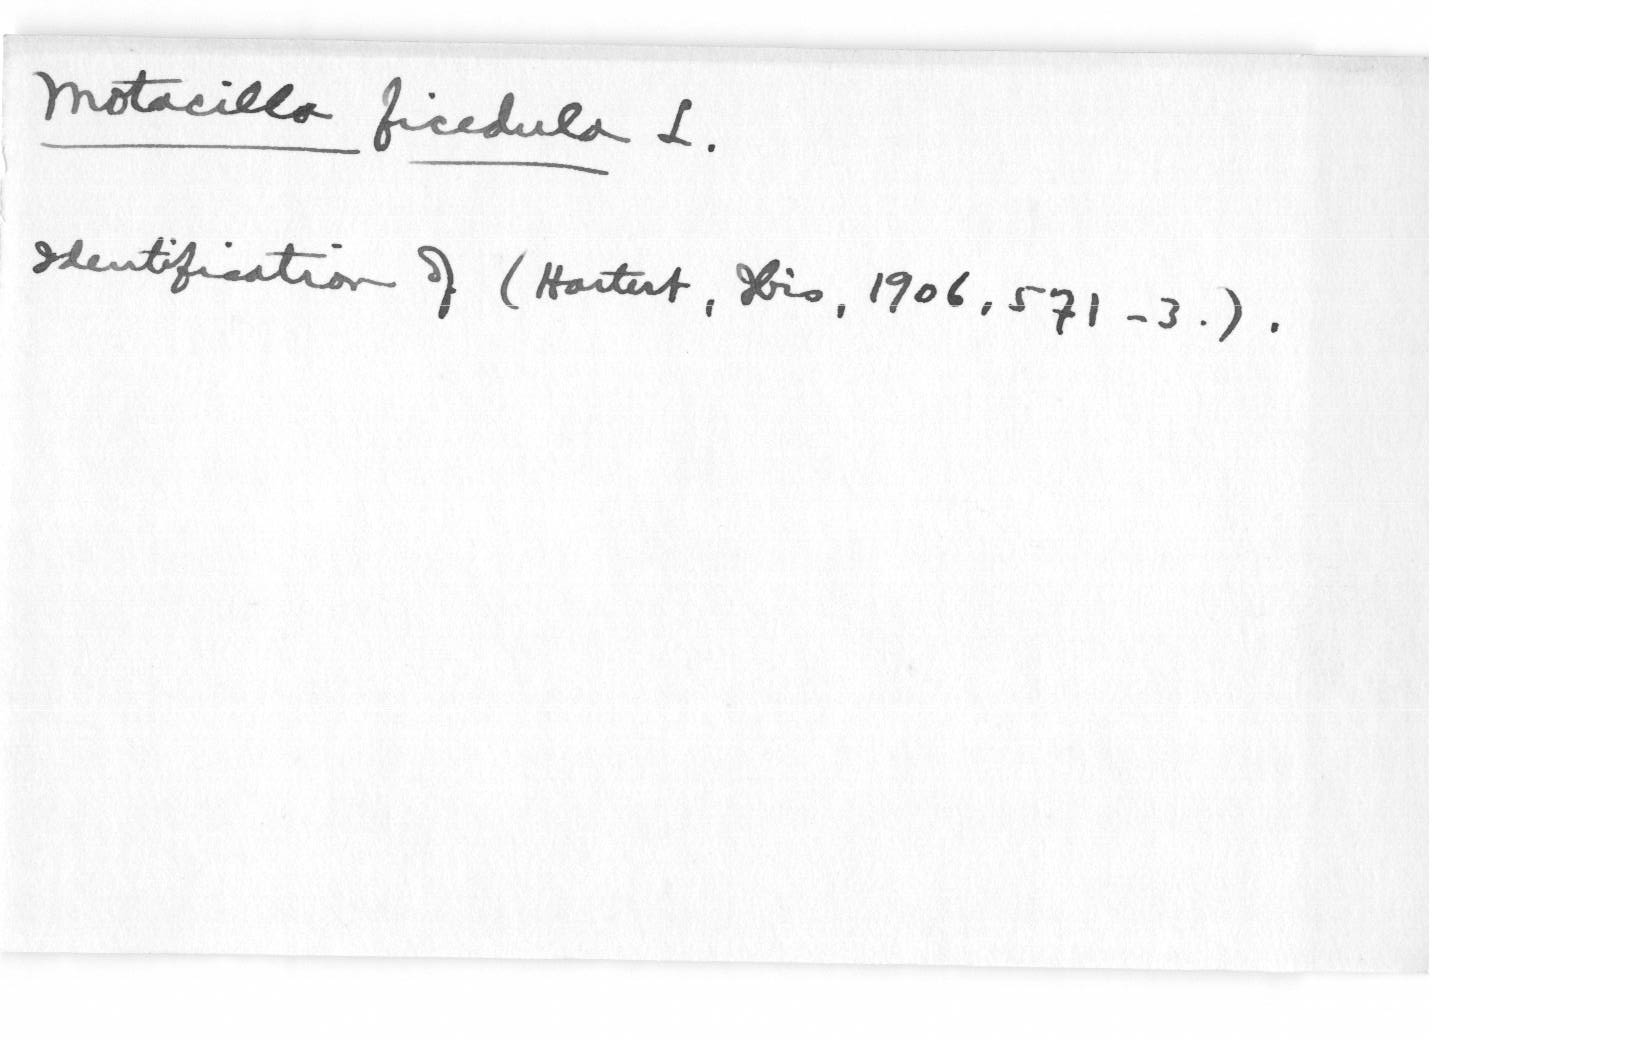 Motacilla ficedula L.
Identification of (Hartert, Ibis, 1906, 571-3.).